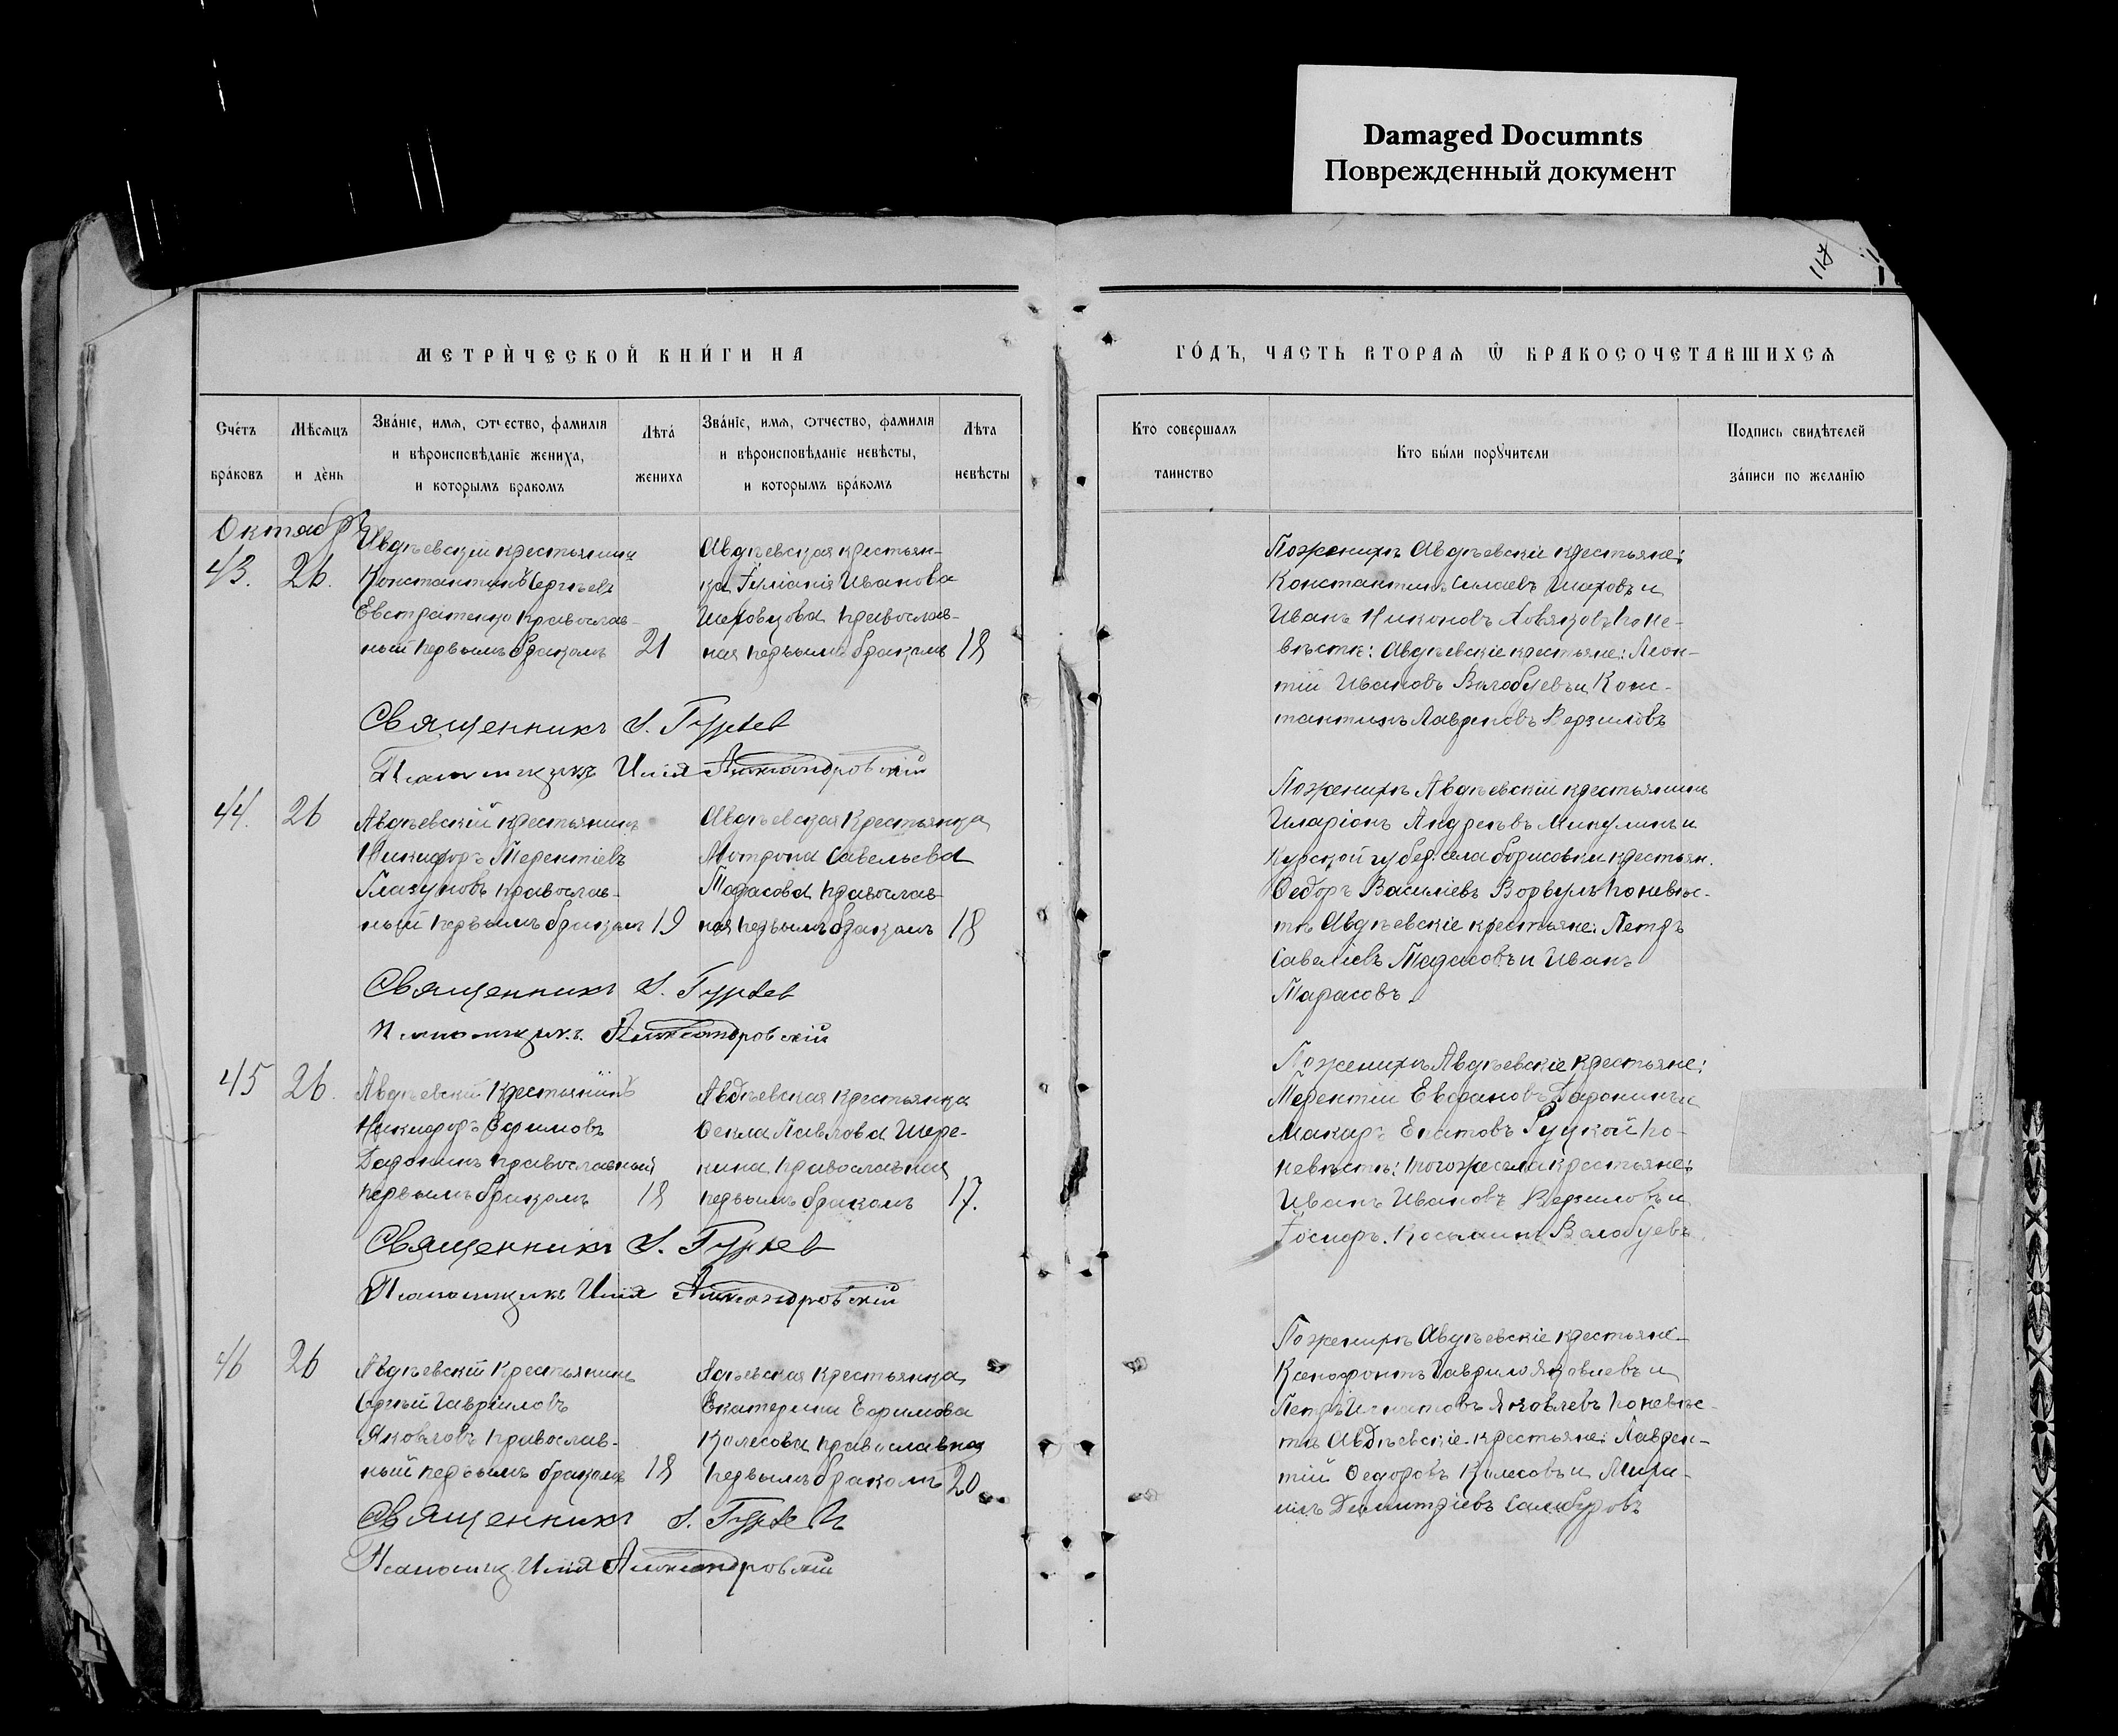 Damaged Documnts
Поврежденный документ
117
МЕТРИЧЕСКОЙ КНИГИ НА
ГОДЪ, ЧАСТЬ ВТОРАЯ Ѿ БРАКОСОЧЕТАВШИХСЯ
Счетъ браковъ
Мѣсяцъ и день
Званіе, имя, отчество, фамилія
и вѣроисповѣданіе жениха,
и которымъ бракомъ
Лѣта жениха
Званіе, имя, отчество, фамилія
и вѣроисповѣданіе невѣсты,
и которымъ бракомъ
Лѣта невѣсты
Кто совершалъ таинство
Кто были поручители
Подпись свидѣтелей
записи по желанію
Октябрь
43. 26.
Авдѣевскій крестьянинъ
Константинъ Сергѣевъ
Евстратенко православ-
ный первымъ бракомъ 21
Авдѣевская крестьян-
ка Іуліанія Иванова
Шеховцова православ-
ная первымъ бракомъ 18
Священникъ І. Гурьев
Псаломщикъ Илія Александровскій
По женихѣ Авдѣевскіе крестьяне:
Константинъ Силаевъ Шаховъ и
Иванъ Никоновъ Ховяковъ по не-
вѣстѣ: Авдѣевскіе крестьяне: Леон-
тій Ивановъ Валобуевъ и Конс-
тантинъ Лавреновъ Верзиловъ
44. 26
Авдѣевскій крестьянинъ
Никифоръ Терентіевъ
Глазуновъ православ-
ный первымъ бракомъ 19
Авдѣевская Крестьянка
Мотрона Савельева
Тарасова православ-
ная первымъ бракомъ 18
Священникъ І. Гурьев
Псаломщикъ. Александровскій
По женихѣ Авдѣевскій крестьянинъ
Иларіонъ Андреевъ Микулинъ и
Курской губер. села Борисовки крестьян.
Ѳедоръ Василіевъ Ворвуль по невѣс-
тѣ Авдѣевскіе крестьяне: Петръ
Савеліевъ Тарасовъ и Иванъ
Тарасовъ.
45 26.
Авдѣевскій Крестьянинъ
Никифоръ Ефимовъ
Даронинъ православный
первымъ бракомъ 18
Авдѣевская крестьянка
Ѳекла Павлова Шере-
кина православная
первымъ бракомъ 17.
Священникъ І. Гурьев
Псаломщикъ Илія Александровскій
По женихѣ Авдѣевскіе крестьяне:
Терентій Евфановъ Даронинъ и
Макаръ Епатовъ Руцкой по
невѣстѣ: того же села крестьяне:
Иванъ Ивановъ Верзиловъ и
Іосифъ. Косьминъ Валобуевъ.
46 26
Авдѣевскій Крестьянинъ
Сергѣй Гавріиловъ
Яковлевъ православ-
ный первымъ бракомъ 18
Адѣевская крестьянка
Екатерина Ефимова
Колесова православная
первымъ бракомъ 20
Священникъ І. Гурьевъ
Псаломщ. Илія Александровскій
По женихѣ Авдѣевскіе крестьяне
Ксенофонтъ Гаврило Яковлевъ и
Петръ Игнатовъ Яковлевъ по невѣс-
тѣ Авдѣевскіе крестьяне: Лаврен-
тій Ѳедоровъ Колесовъ и Миха-
илъ Димитріевъ Самбуровъ